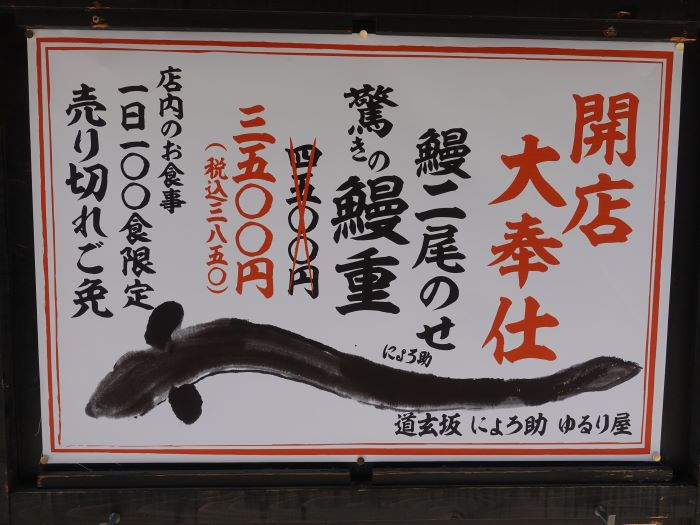 開店
大奉仕
鰻二尾のせ
驚きの鰻重
四五〇〇円
三五〇〇円
(税込三八五〇)
店内のお食事
一日一〇〇食限定
売り切れご免
にょろ助
道玄坂 にょろ助 ゆるり屋